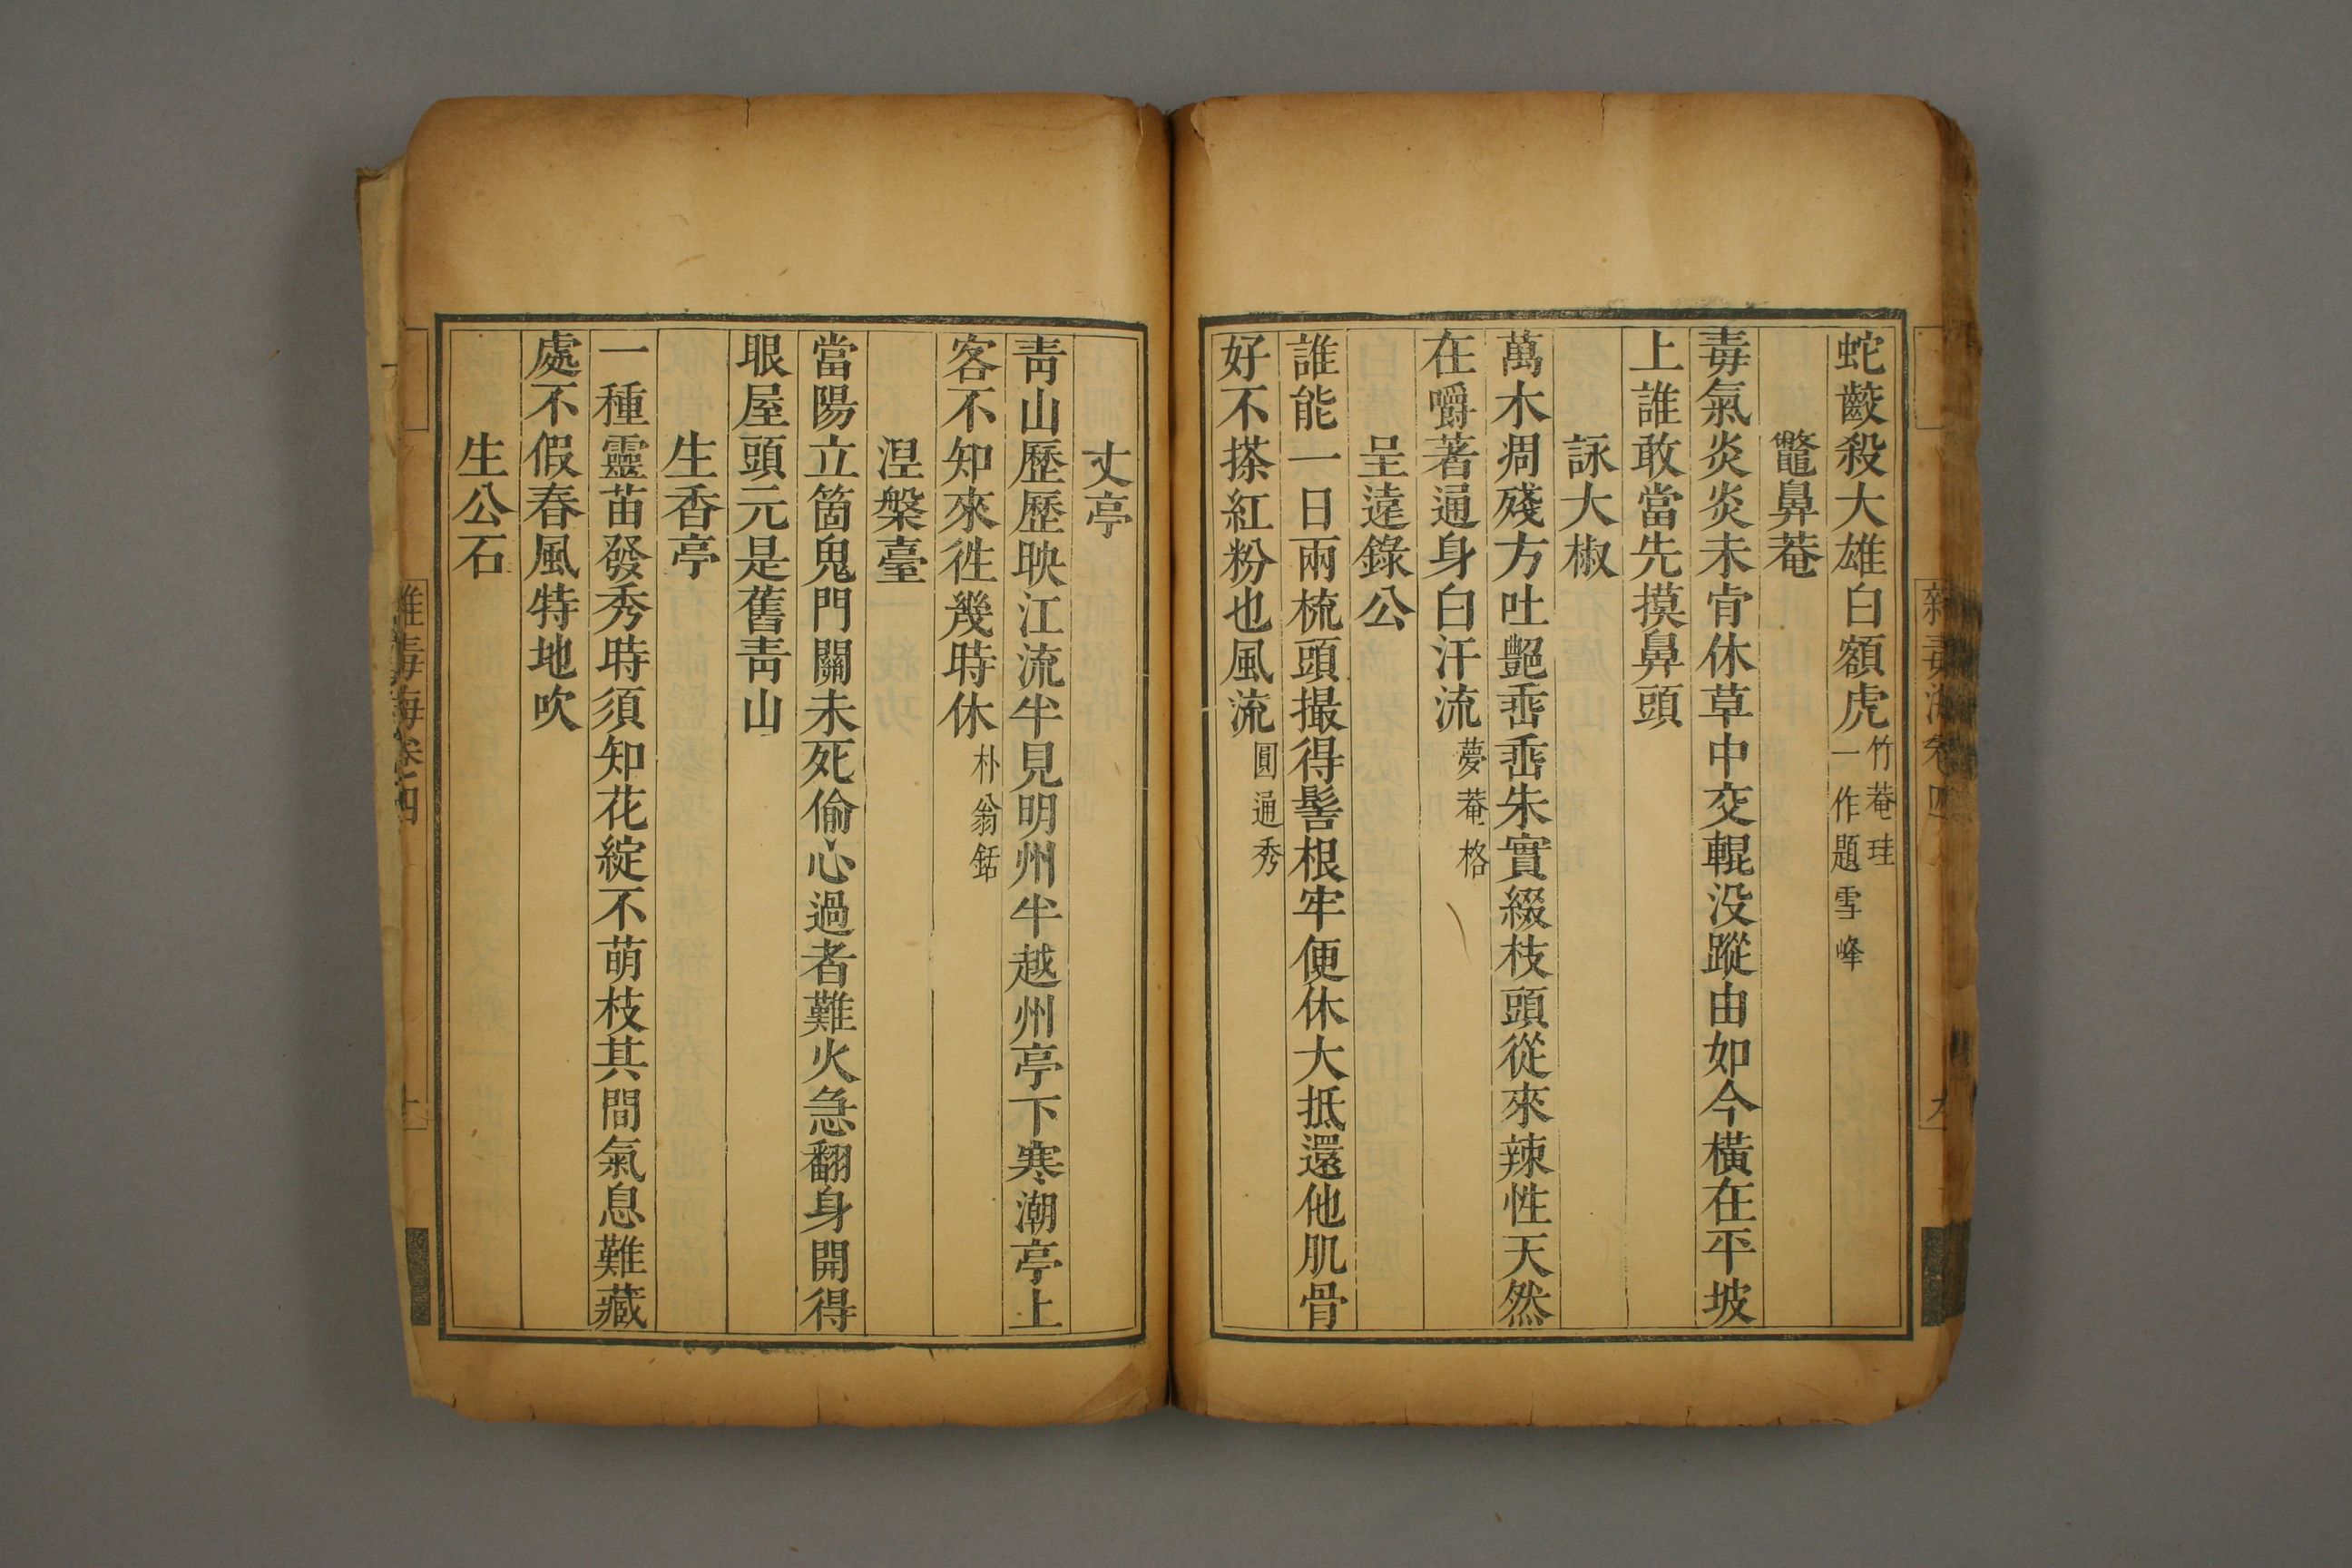 蛇齩殺大雄白額虎竹菴珪
一作題雪峰
鼈鼻菴
毒氣炎炎未肯休草中交輥没蹤由如今橫在平坡
上誰敢當先摸鼻頭
詠大椒
萬木凋殘方吐艷垂垂朱實綴枝頭從來辣性天然
在嚼著通身白汗流夢菴格
呈遠錄公
誰能一日兩梳頭撮得髻根牢便休大抵還他肌骨
好不搽紅粉也風流圓通秀
丈亭
靑山歷歷映江流半見明州半越州亭下寒潮亭上
客不知來徃幾時休朴翁銛
涅槃臺
當陽立箇鬼門關未死偷心過者難火急翻身開得
眼屋頭元是舊靑山
生香亭
一種靈苗發秀時須知花綻不萌枝其間氣息難藏
處不假春風特地吹
生公石
雜毒海卷四